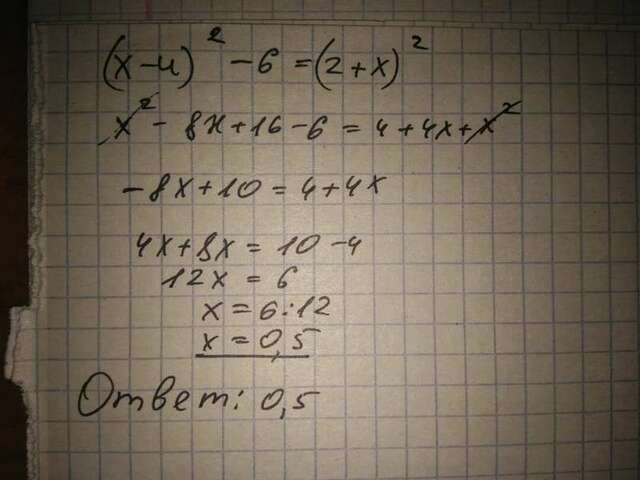 (x-4)² - 6 = (2+x)²
x² - 8x + 16 - 6 = 4 + 4x + x²
-8x + 10 = 4 + 4x
4x + 8x = 10 - 4
12x = 6
x = 6:12
x = 0,5
Ответ: 0,5